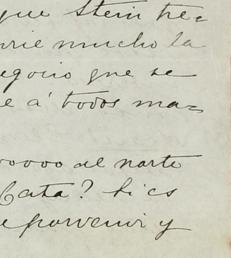 que Stein tre=
mucho la
negocio que se
e á todos ma=
al norte
Cata? Si es
porvenir y